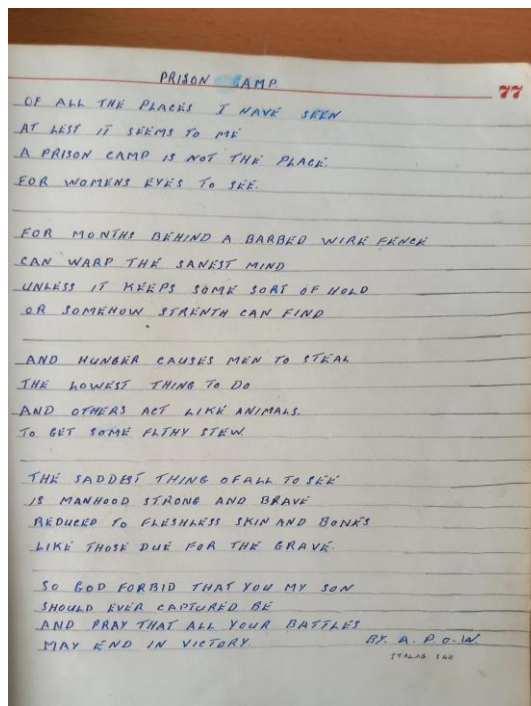 PRISON CAMP
77
OF ALL THE PLACES I HAVE SEEN
AT LEST IT SEEMS TO ME
A PRISON CAMP IS NOT THE PLACE.
FOR WOMENS EYES TO SEE.
FOR MONTHS BEHIND A BARBED WIRE FENCE
CAN WARP THE SANEST MIND
UNLESS IT KEEPS SOME SORT OF HOLD
OR SOMEHOW STRENTH CAN FIND
AND HUNGER CAUSES MEN TO STEAL
THE LOWEST THING TO DO
AND OTHERS ACT LIKE ANIMALS.
TO GET SOME FLTHY STEW.
THE SADDEST THING OF ALL TO SEE
IS MANHOOD STRONG AND BRAVE
REDUCED TO FLESHLESS SKIN AND BONES
LIKE THOSE DUE FOR THE GRAVE.
SO GOD FORBID THAT YOU MY SON
SHOULD EVER CAPTURED BE
AND PRAY THAT ALL YOUR BATTLES
MAY END IN VICTORY. BY. A. P.O.W.
STALAG